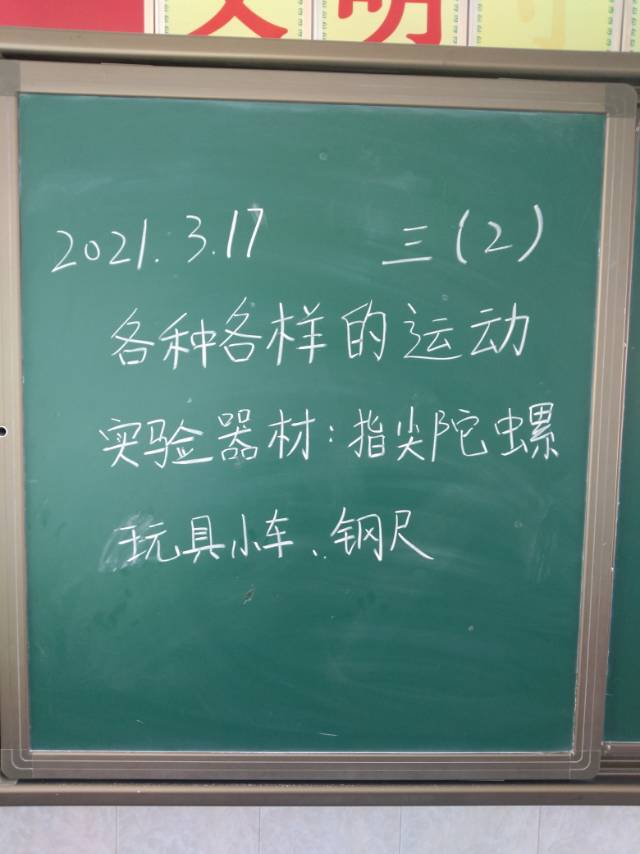 文明
2021.3.17 三(2)
各种各样的运动
实验器材:指尖陀螺
玩具小车、钢尺